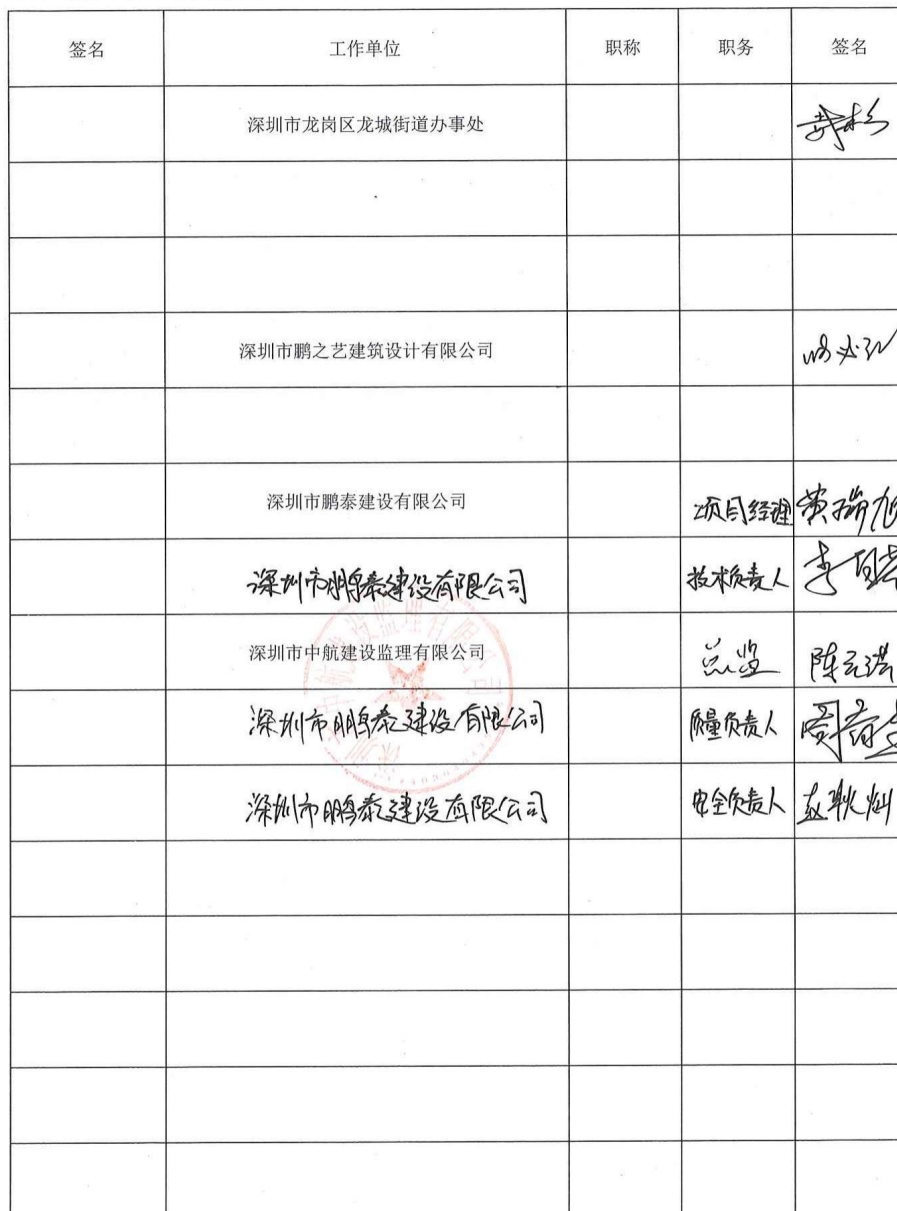 签名 工作单位 职称 职务 签名
深圳市龙岗区龙城街道办事处
深圳市鹏之艺建筑设计有限公司
深圳市鹏泰建设有限公司 项目经理 黄瑞旭
深圳市鹏泰建设有限公司 技术负责人
深圳市中航建设监理有限公司 总监 陈云洪
深圳市鹏泰建设有限公司 质量负责人
深圳市鹏泰建设有限公司 安全负责人